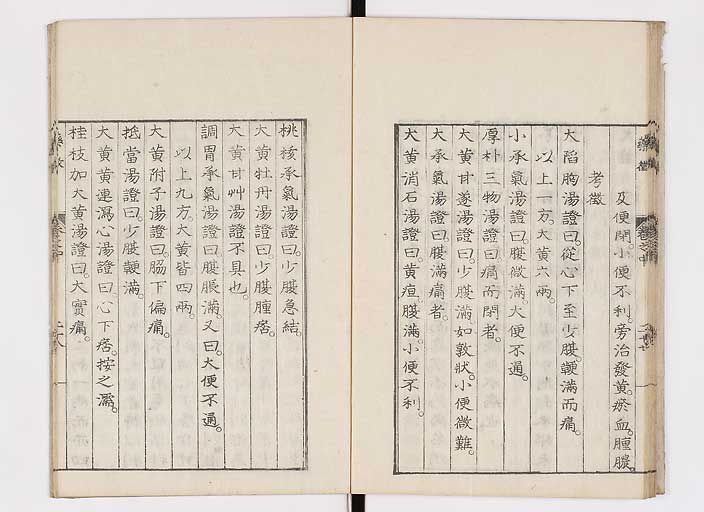 及便閉。小便不利。旁治發黃。瘀血。腫膿。
考徵
大陷胸湯證曰。從心下至少腹。鞕滿而痛。
以上一方。大黃六兩。
小承氣湯證曰。腹微滿。大便不通。
厚朴三物湯證曰。痛而閉者。
大黃甘遂湯證曰。少腹滿如敦狀。小便微難。
大承氣湯證曰。腹滿痛者。
大黃消石湯證曰。黃疸腹滿。小便不利。
桃核承氣湯證曰。少腹急結。
大黃牡丹湯證曰。少腹腫痞。
大黃甘艸湯證不具也。
調胃承氣湯證曰。腹脹滿。又曰。大便不通。
以上九方。大黃皆四兩。
大黃附子湯證曰。脇下偏痛。
抵當湯證曰。少腹鞕滿。
大黃黃連瀉心湯證曰。心下痞。按之濡。
桂枝加大黃湯證曰。大實痛。